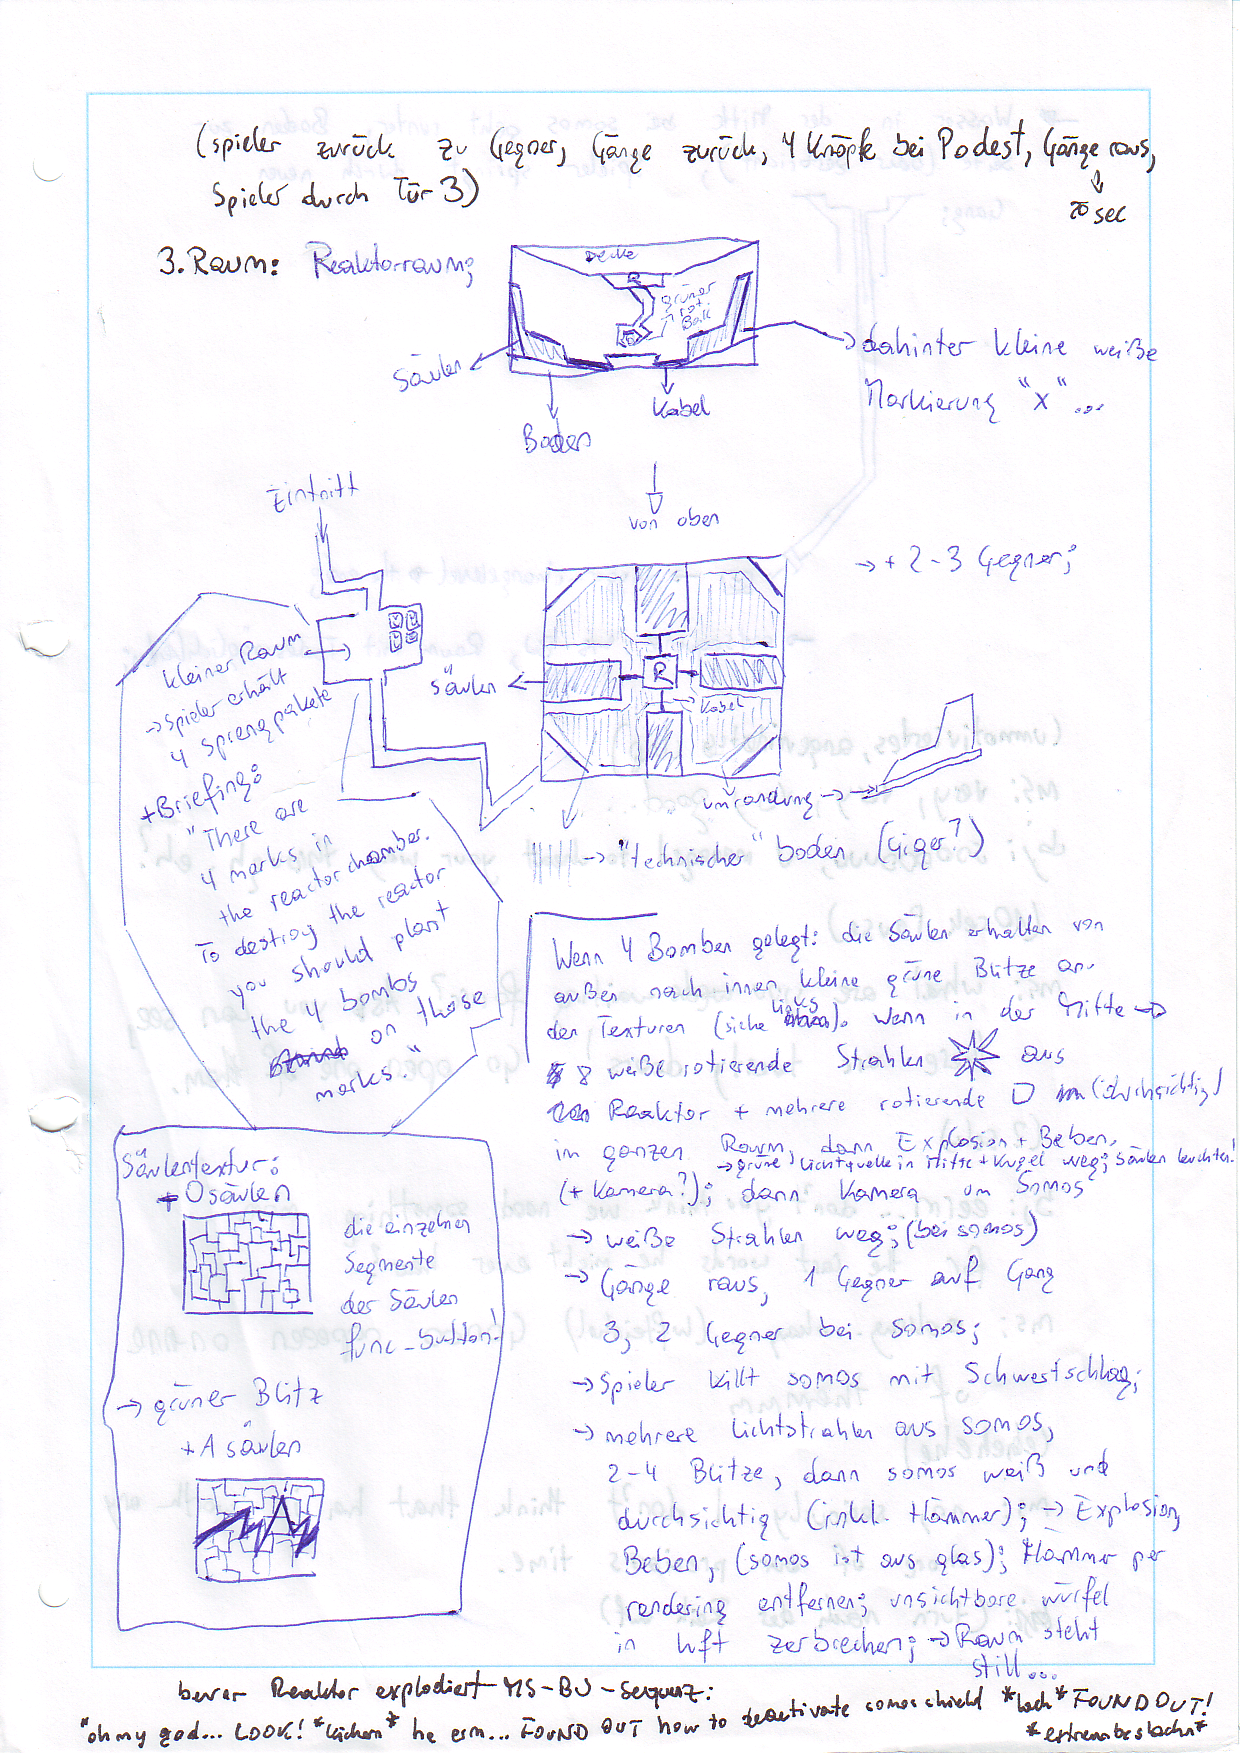 (spieler zurück zu Gegner, Gänge zurück, 4 Knöpfe bei Podest, Gänge raus,
Spieler durch Tür 3)
20 sec
3. Raum: Reaktorraum;
Decke
R
grüner
Ball
Säulen
Boden
Kabel
dahinter kleine weiße
Markierung "x" ...
Eintritt
von oben
→ + 2-3 Gegner;
kleiner Raum
→ Spieler erhält
4 Sprengpakete
+ Briefing:
"There are
4 marks in
the reactor chamber.
To destroy the reactor
you should plant
the 4 bombs
on those
marks."
Säulen
R
Kabel
umrandung →
→ "technischer" boden (Giger?)
Wenn 4 Bomben gelegt: die Säulen erhalten von
außen nach innen kleine grüne Blitze an
den Texturen (siehe links). Wenn in der Mitte →
8 weiße rotierende Strahlen aus
Reaktor + mehrere rotierende (durchsichtig)
im ganzen Raum, dann Explosion + Beben,
→ grüne Lichtquelle in Mitte + Kugel weg; Säulen leuchten!
(+ Kamera?); dann Kamera um Somos
→ weiße Strahlen weg; (bei somos)
→ Gänge raus, 1 Gegner auf Gang
3, 2 Gegner bei Somos;
→ Spieler killt somos mit Schwertschlag;
→ mehrere Lichtstrahlen aus somos,
2-4 Blitze, dann somos weiß und
durchsichtig (inkl. Hämmer); → Explosion,
Beben, (somos ist aus glas); Hammer per
rendering entfernen; unsichtbare würfel
in luft zerbrechen; → Raum steht
still...
Säulentextur:
+ 0 säulen
die einzelnen
Segmente
der Säulen
func_button!
→ grüner Blitz
+ A säulen
bevor Reaktor explodiert - MS-BJ-Sequenz:
"oh my god... LOOK! *kichern* he erm... FOUND OUT how to deactivate somos shield *lach* FOUND OUT!